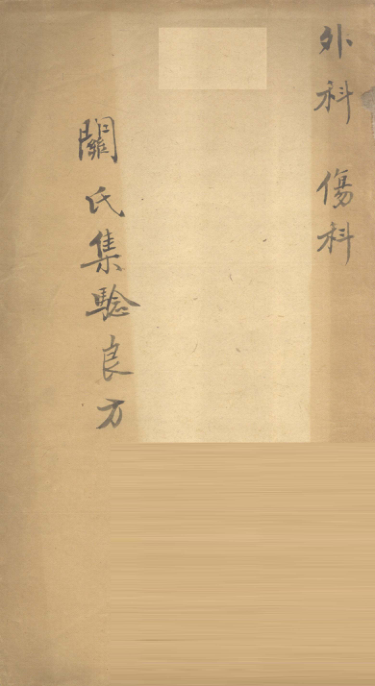 外科 傷科
關氏集騐良方